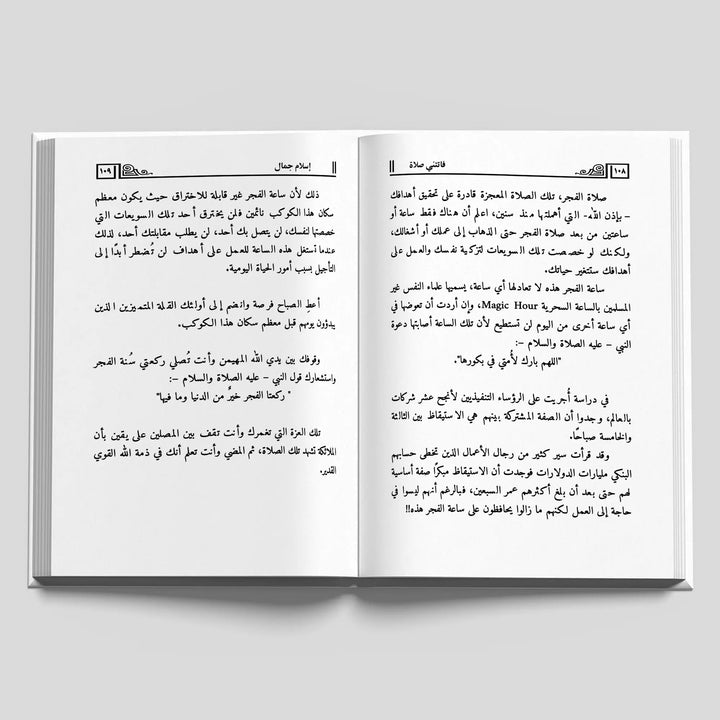 فاتتني صلاة
١٠٨
صلاة الفجر، تلك الصلاة المعجزة قادرة على تحقيق أهدافك
– بإذن الله- التي أهملتها منذ سنين، اعلم أن هناك فقط ساعة أو
ساعتين من بعد صلاة الفجر حتى الذهاب إلى عملك أو أشغالك،
ولكنك لو خصصت تلك السويعات لتزكية نفسك والعمل على
أهدافك ستتغير حياتك.
ساعة الفجر هذه لا تعادلها أي ساعة، يسميها علماء النفس غير
المسلمين بالساعة السحرية Magic Hour، وإن أردت أن تعوضها في
أي ساعة أخرى من اليوم لن تستطيع لأن تلك الساعة أصابتها دعوة
النبي – عليه الصلاة والسلام –:
"اللهم بارك لأمتي في بكورها".
في دراسة أُجريت على الرؤساء التنفيذيين لأنجح عشر شركات
بالعالم، وجدوا أن الصفة المشتركة بينهم هي الاستيقاظ بين الثالثة
والخامسة صباحًا.
وقد قرأت سير كثير من رجال الأعمال الذين تخطى حسابهم
البنكي مليارات الدولارات فوجدت أن الاستيقاظ مبكرًا صفة أساسية
لهم حتى بعد أن بلغ أكثرهم عمر السبعين، فبالرغم أنهم ليسوا في
حاجة إلى العمل لكنهم ما زالوا يحافظون على ساعة الفجر هذه!!
إسلام جمال
١٠٩
ذلك لأن ساعة الفجر غير قابلة للاختراق حيث يكون معظم
سكان هذا الكوكب نائمين فلن يخترق أحد تلك السويعات التي
خصصتها لنفسك، لن يتصل بك أحد، لن يطلب مقابلتك أحد، لذلك
عندما تستغل هذه الساعة للعمل على أهدافك لن تُضطر أبدًا إلى
التأجيل بسبب أمور الحياة اليومية.
أعطِ الصباح فرصة وانضم إلى أولئك القلة المتميزين الذين
يبدؤون يومهم قبل معظم سكان هذا الكوكب.
وقوفك بين يدي الله المهيمن وأنت تُصلي ركعتي سُنة الفجر
واستشعارك قول النبي – عليه الصلاة والسلام –:
" ركعتا الفجر خيرٌ من الدنيا وما فيها"
تلك العزة التي تغمرك وأنت تقف بين المصلين على يقين بأن
الملائكة تشهد تلك الصلاة، ثم المضي وأنت تعلم أنك في ذمة الله القوي
القدير.